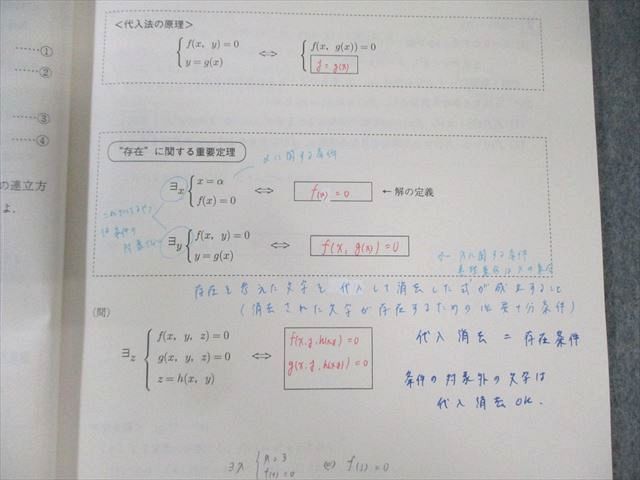 ……①
……②
……③
……④
の連立方
よ.
<代入法の原理>
f(x, y)=0 ⇔ f(x, g(x))=0
y=g(x) y=g(x)
"存在"に関する重要定理
αに関する条件
∃x { x=α
f(x)=0 ⇔ f(α)=0 ←解の定義
∃y { f(x, y)=0
y=g(x) ⇔ f(x, g(x))=0
← xに関する条件
存在を考えた文字を代入して消去した式が成立すること
(消去された文字が存在するための必要十分条件)
(問)
∃z { f(x, y, z)=0
g(x, y, z)=0
z=h(x, y)
⇔ f(x,y,h(x,y))=0
g(x,y,h(x,y))=0
代入消去 = 存在条件
条件の対象外の文字は
代入消去OK.
∃x { x=3
f(x)=0 ⇔ f(3)=0